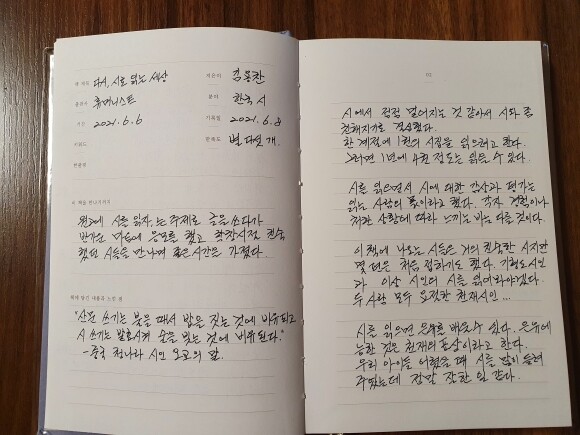 책 제목 다시, 시로 읽는 세상
지은이 김용찬
출판사 휴머니스트
분야 한국 시
기간 2021. 6. 6
기록일 2021. 6. 8
만족도 별 다섯 개.
이 책을 만나기까지
시를 읽자,는 주제로 글을 쓰다가
반가운 마음에 응모를 했고 학창시절 친숙
했던 시들을 만나며 좋은시간을 가졌다.
책에 담긴 내용과 느낀 점
"산문 쓰기는 불을 때서 밥을 짓는 것에 비유되고
시 쓰기는 발효시켜 술을 빚는 것에 비유된다."
- 중국 청나라 시인 오교의 말.
시에서 점점 멀어지는 것 같아서 시와 좀
친해지기로 결심했다.
한 계절에 1권의 시집을 읽으려고 한다.
그러면 1년에 4권 정도는 읽을 수 있다.
시를 읽으면서 시에 대한 감상과 평가는
읽는 사람의 몫이라고 했다. 각자 경험이나
처한 상황에 따라 느끼는 바는 다를 것이다.
이 책에 나오는 시들은 거의 친숙한 시지만
몇 편은 처음 접하기도 했다. 기형도시인
과 이상 시인의 시를 읽어봐야겠다.
두 사람 모두 요절한 천재시인...
시를 읽으면 은유를 배울수 있다. 은유에
능한 것은 천재의 표상이라고 한다.
우리 아이들 어렸을 때 시를 많이 들려
주었는데 정말 잘한 일 같다.